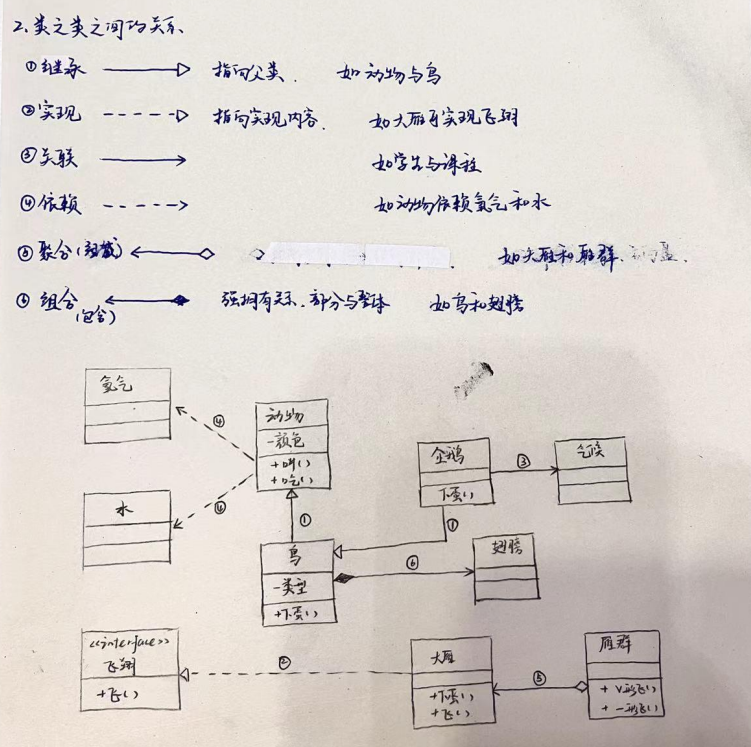 2.类之类之间的关系
①继承 指向父类. 如动物与鸟
②实现 指向实现内容. 如大雁可实现飞翔
③关联 如学生与课程
④依赖 如动物依赖氧气和水
⑤聚合 如大雁和雁群.
⑥组合(包含) 强拥有关系.部分与整体 如鸟和翅膀
氧气
动物
-颜色
+叫()
+吃()
④
④
水
企鹅
下蛋()
③
气候
①
①
鸟
-类型
+下蛋()
⑥
翅膀
<<interface>>
飞翔
+飞()
②
大雁
+下蛋()
+飞()
⑤
雁群
+V形飞()
+一形飞()